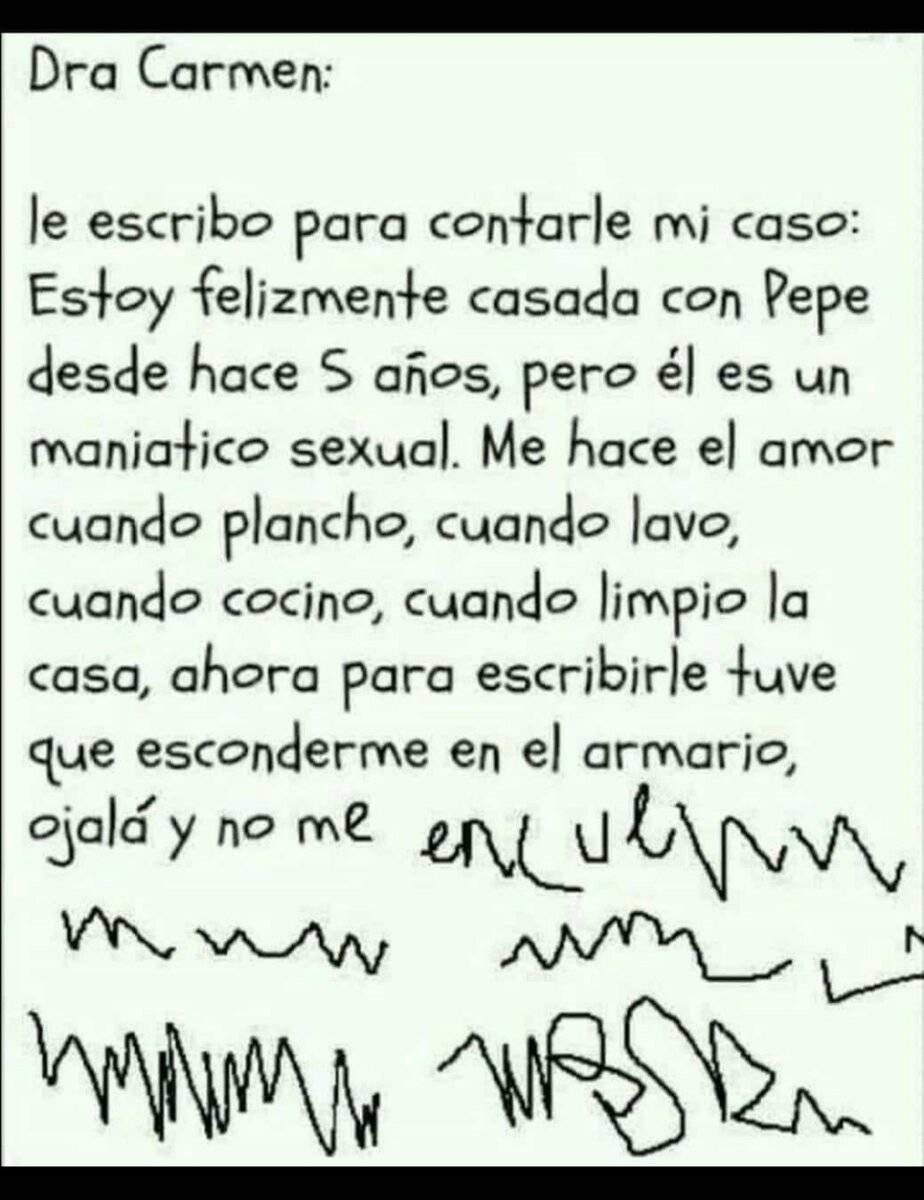 Dra Carmen:
le escribo para contarle mi caso:
Estoy felizmente casada con Pepe
desde hace 5 años, pero él es un
maniatico sexual. Me hace el amor
cuando plancho, cuando lavo,
cuando cocino, cuando limpio la
casa, ahora para escribirle tuve
que esconderme en el armario,
ojalá y no me